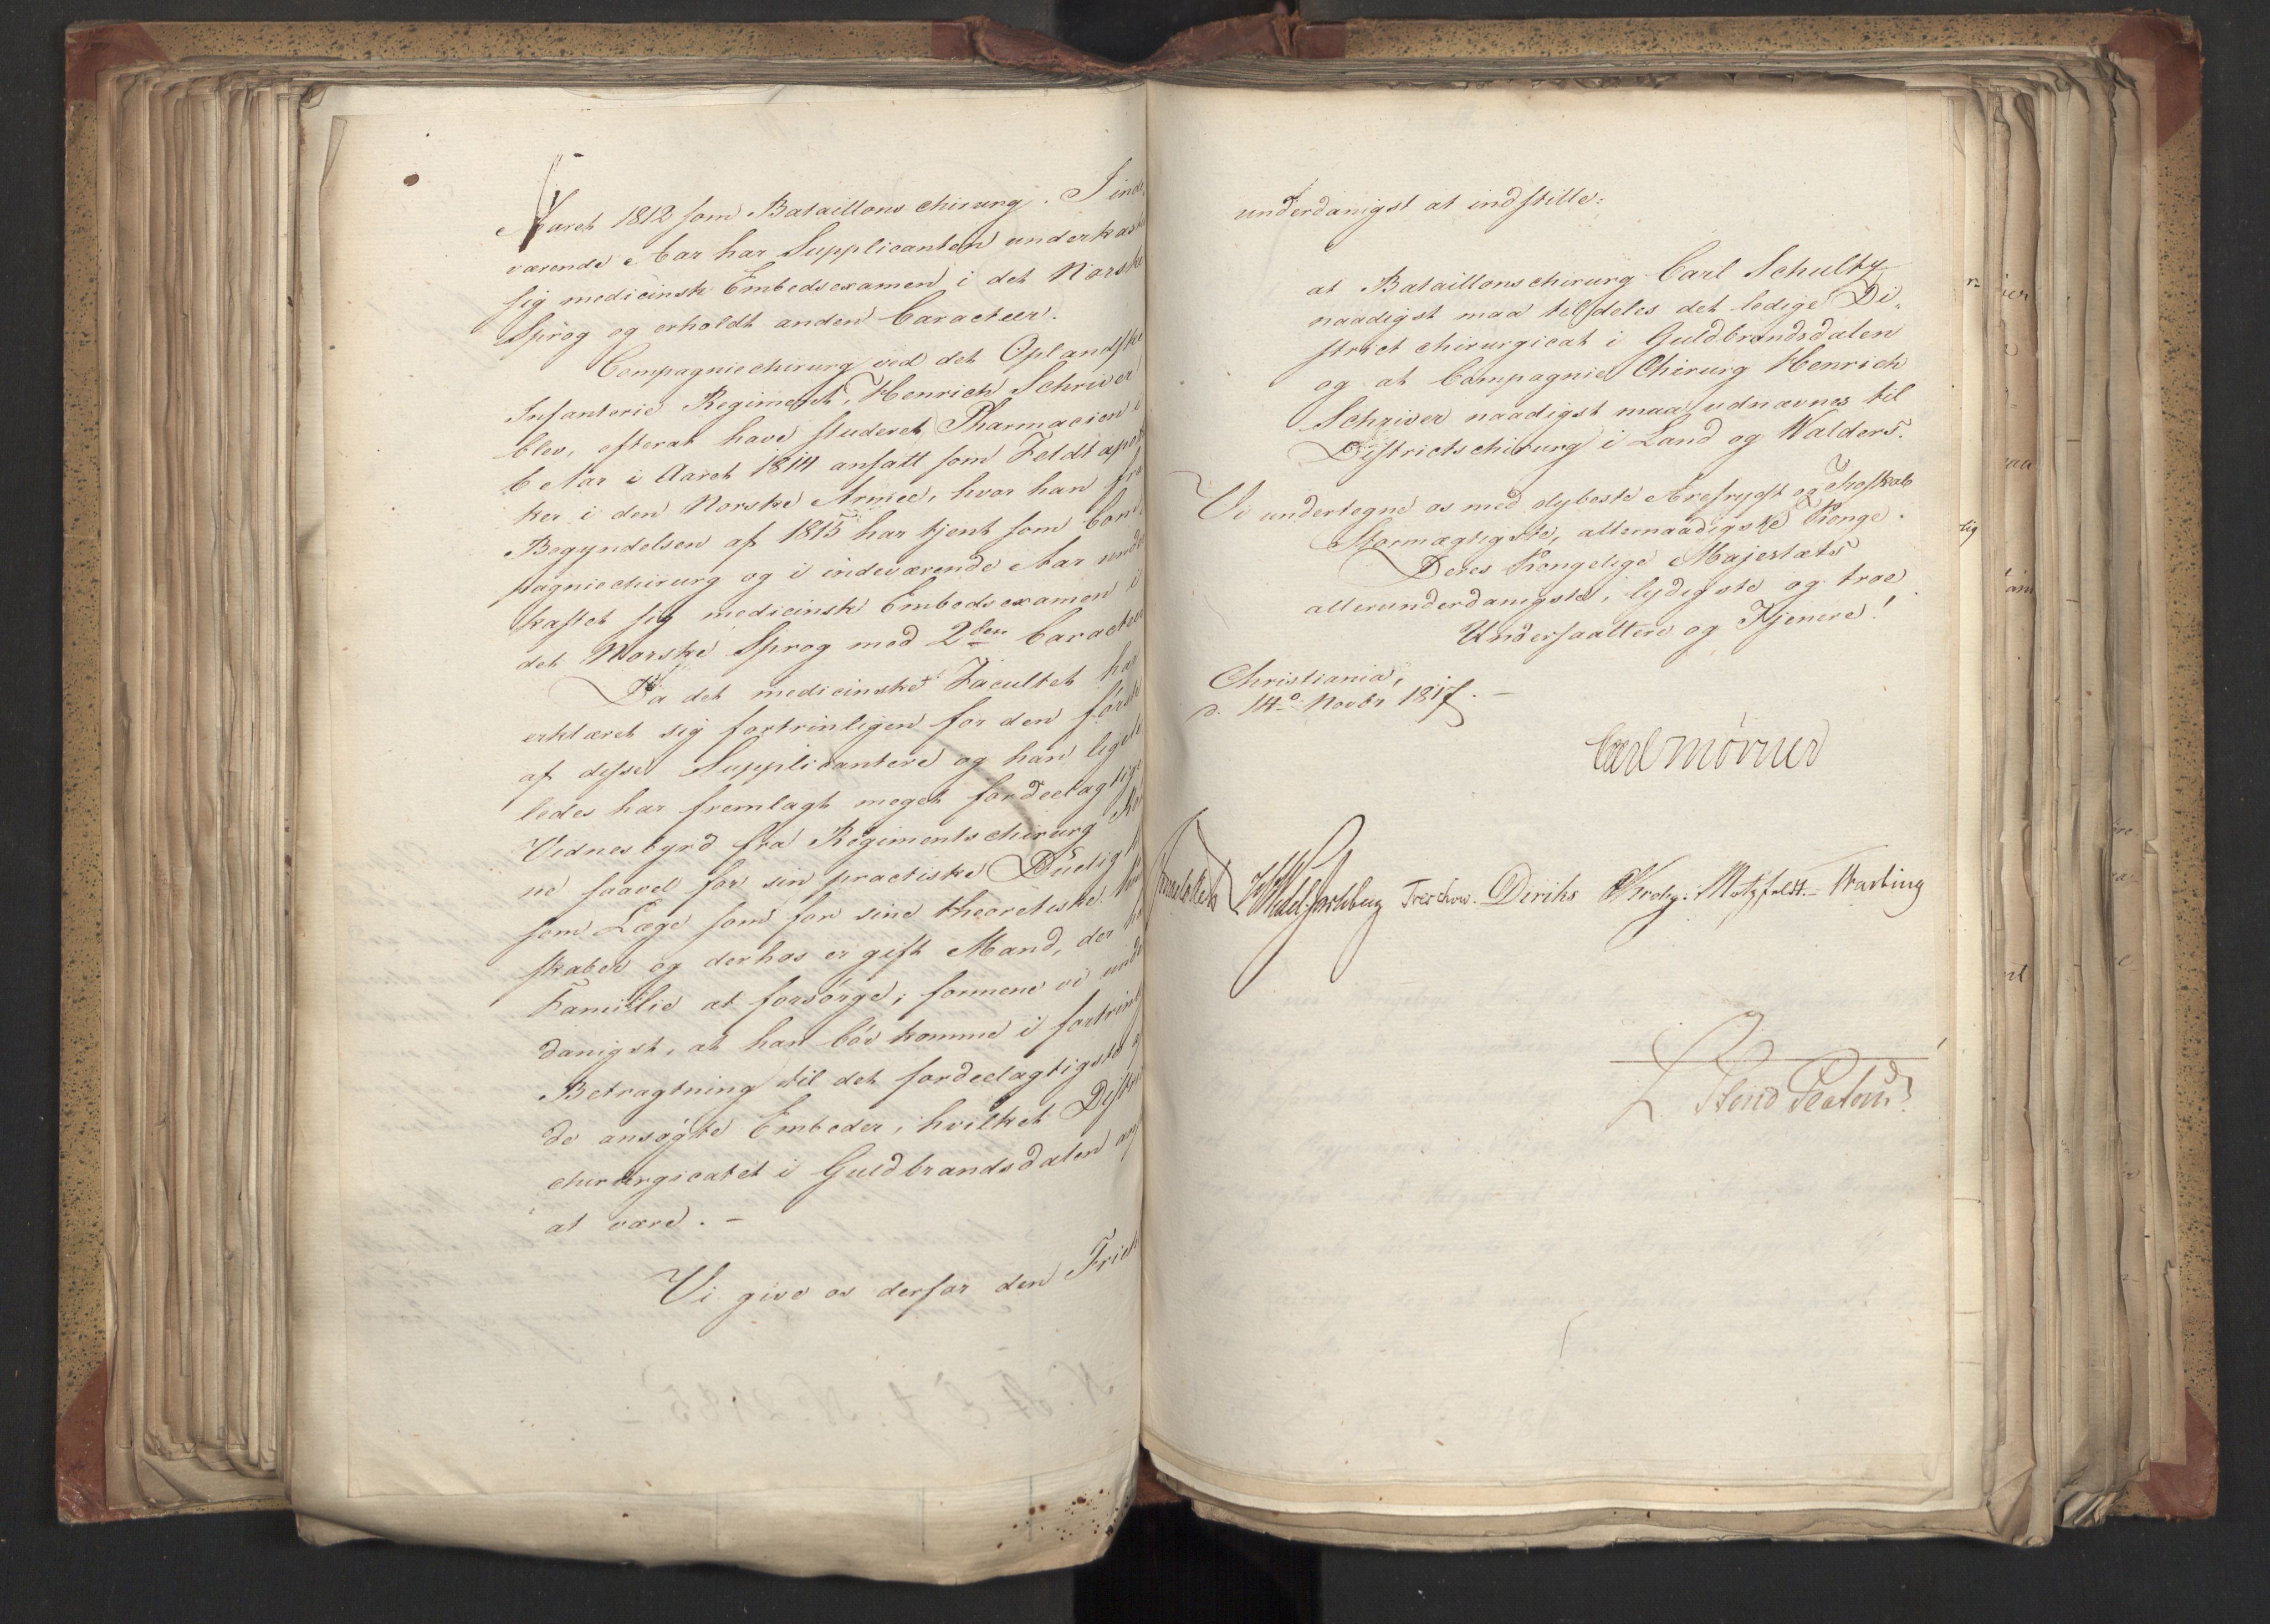 Aaret 1812 som Bataillons chirurg. I inde
værende Aar har Supplicanten underkast
sig medicinsk Embedsexamen i det Norske
Sprog og erholdt anden Caracteer.
Compagniechirurg ved det Oplandske
Infanterie Regiment, Henrich Schriver
blev, efterat have studeret Pharmacien i
6 Aar i Aaret 1814 ansatt som Feldtapot
ker i den Norske Armee, hvor han fra
Begyndelsen af 1815 har tjent som Com
pagniechirurg og i indeværende Aar unde
kastet sig medicinsk Embedsexamen i
det Norske Sprog med 2den Caracteer
Da det medicinske Facultet har
erklæret sig fortrinligen for den første
af disse Supplicantere og han lige
ledes har fremlagt meget fordeelagtige
Vidnesbyrd fra Regimentschirurg
ne saavel for sin practiske Duelig
som Læge som for sine theoretiske
skaber og derhos er gift Mand, der
Familie at forsørge, formene vi unde
danigst, at han bør komme i fortrinlig
Betragtning til det fordeelagtigste
de ansøgte Embeder, hvilket Distri
chirurgicatet i Guldbrandsdalen
at være. -
Vi give os derfor den Frieh
underdanigst at indstille:
at Bataillonschirurg Carl Schultz
naadigst maa tildeles det ledige Di-
strict chirurgicat i Guldbrandsdalen
og at Compagnie Chirurg Henrich
Schriver naadigst maa udnævnes til
Districtschirurg i Land og Walders.
Vi undertegne os med dybeste Ærefrygt og Troskab
Stormægtigste, allernaadigste Konge.
Deres Kongelige Majestæts
allerunderdanigste, lydigste og troe
Undersaattere og Tjenere!
Christiania,
d. 14de Novbr 1817. -
Carl Mörner
Wedel Jarlsberg Treschow. Diriks Krohg. Motzfeldt. -